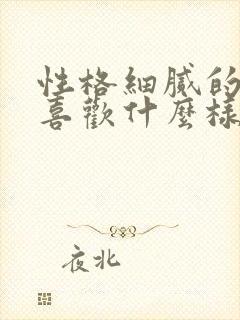 性格細膩的
喜歡什麼樣
夜北